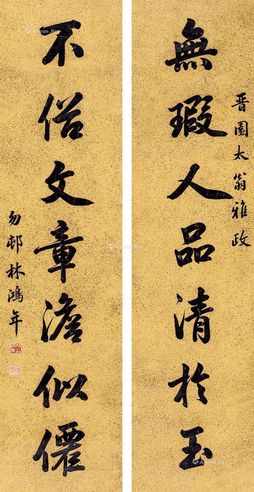 晋園太翁雅政
無瑕人品清於玉
不俗文章澹似僊
勿邨林鴻年